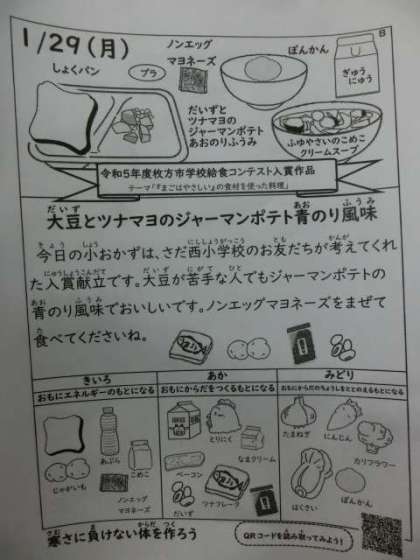 1/29(月)
ノンエッグ
マヨネーズ
ぽんかん
B
しょくパン
プラ
ぎゅう
にゅう
だいずと
ツナマヨの
ジャーマンポテト
あおのりふうみ
ふゆやさいのこめこ
クリームスープ
令和5年度枚方市学校給食コンテスト入賞作品
テーマ「『まごはやさしい』の食材を使った料理」
だいず あお ふうみ
大豆とツナマヨのジャーマンポテト青のり風味
きょう しょう にししょうがっこう とも かんが
今日の小おかずは、さだ西小学校のお友だちが考えてくれ
にゅうしょうこんだて だいず にがて ひと
た入賞献立です。大豆が苦手な人でもジャーマンポテトの
あお ふうみ
青のり風味でおいしいです。ノンエッグマヨネーズをまぜて
た
食べてくださいね。
きいろ
あか
みどり
おもにエネルギーのもとになる
おもにからだをつくるもとになる
おもにからだのちょうしをととのえるもとになる
あぶら
こめこ
じゃがいも
ノンエッグ
マヨネーズ
とりにく
なまクリーム
ベーコン
ツナフレーク
だいず
たまねぎ
にんじん
カリフラワー
はくさい
ぽんかん
さむ ま からだ つく
寒さに負けない体を作ろう
QRコードを読み取ってみよう!